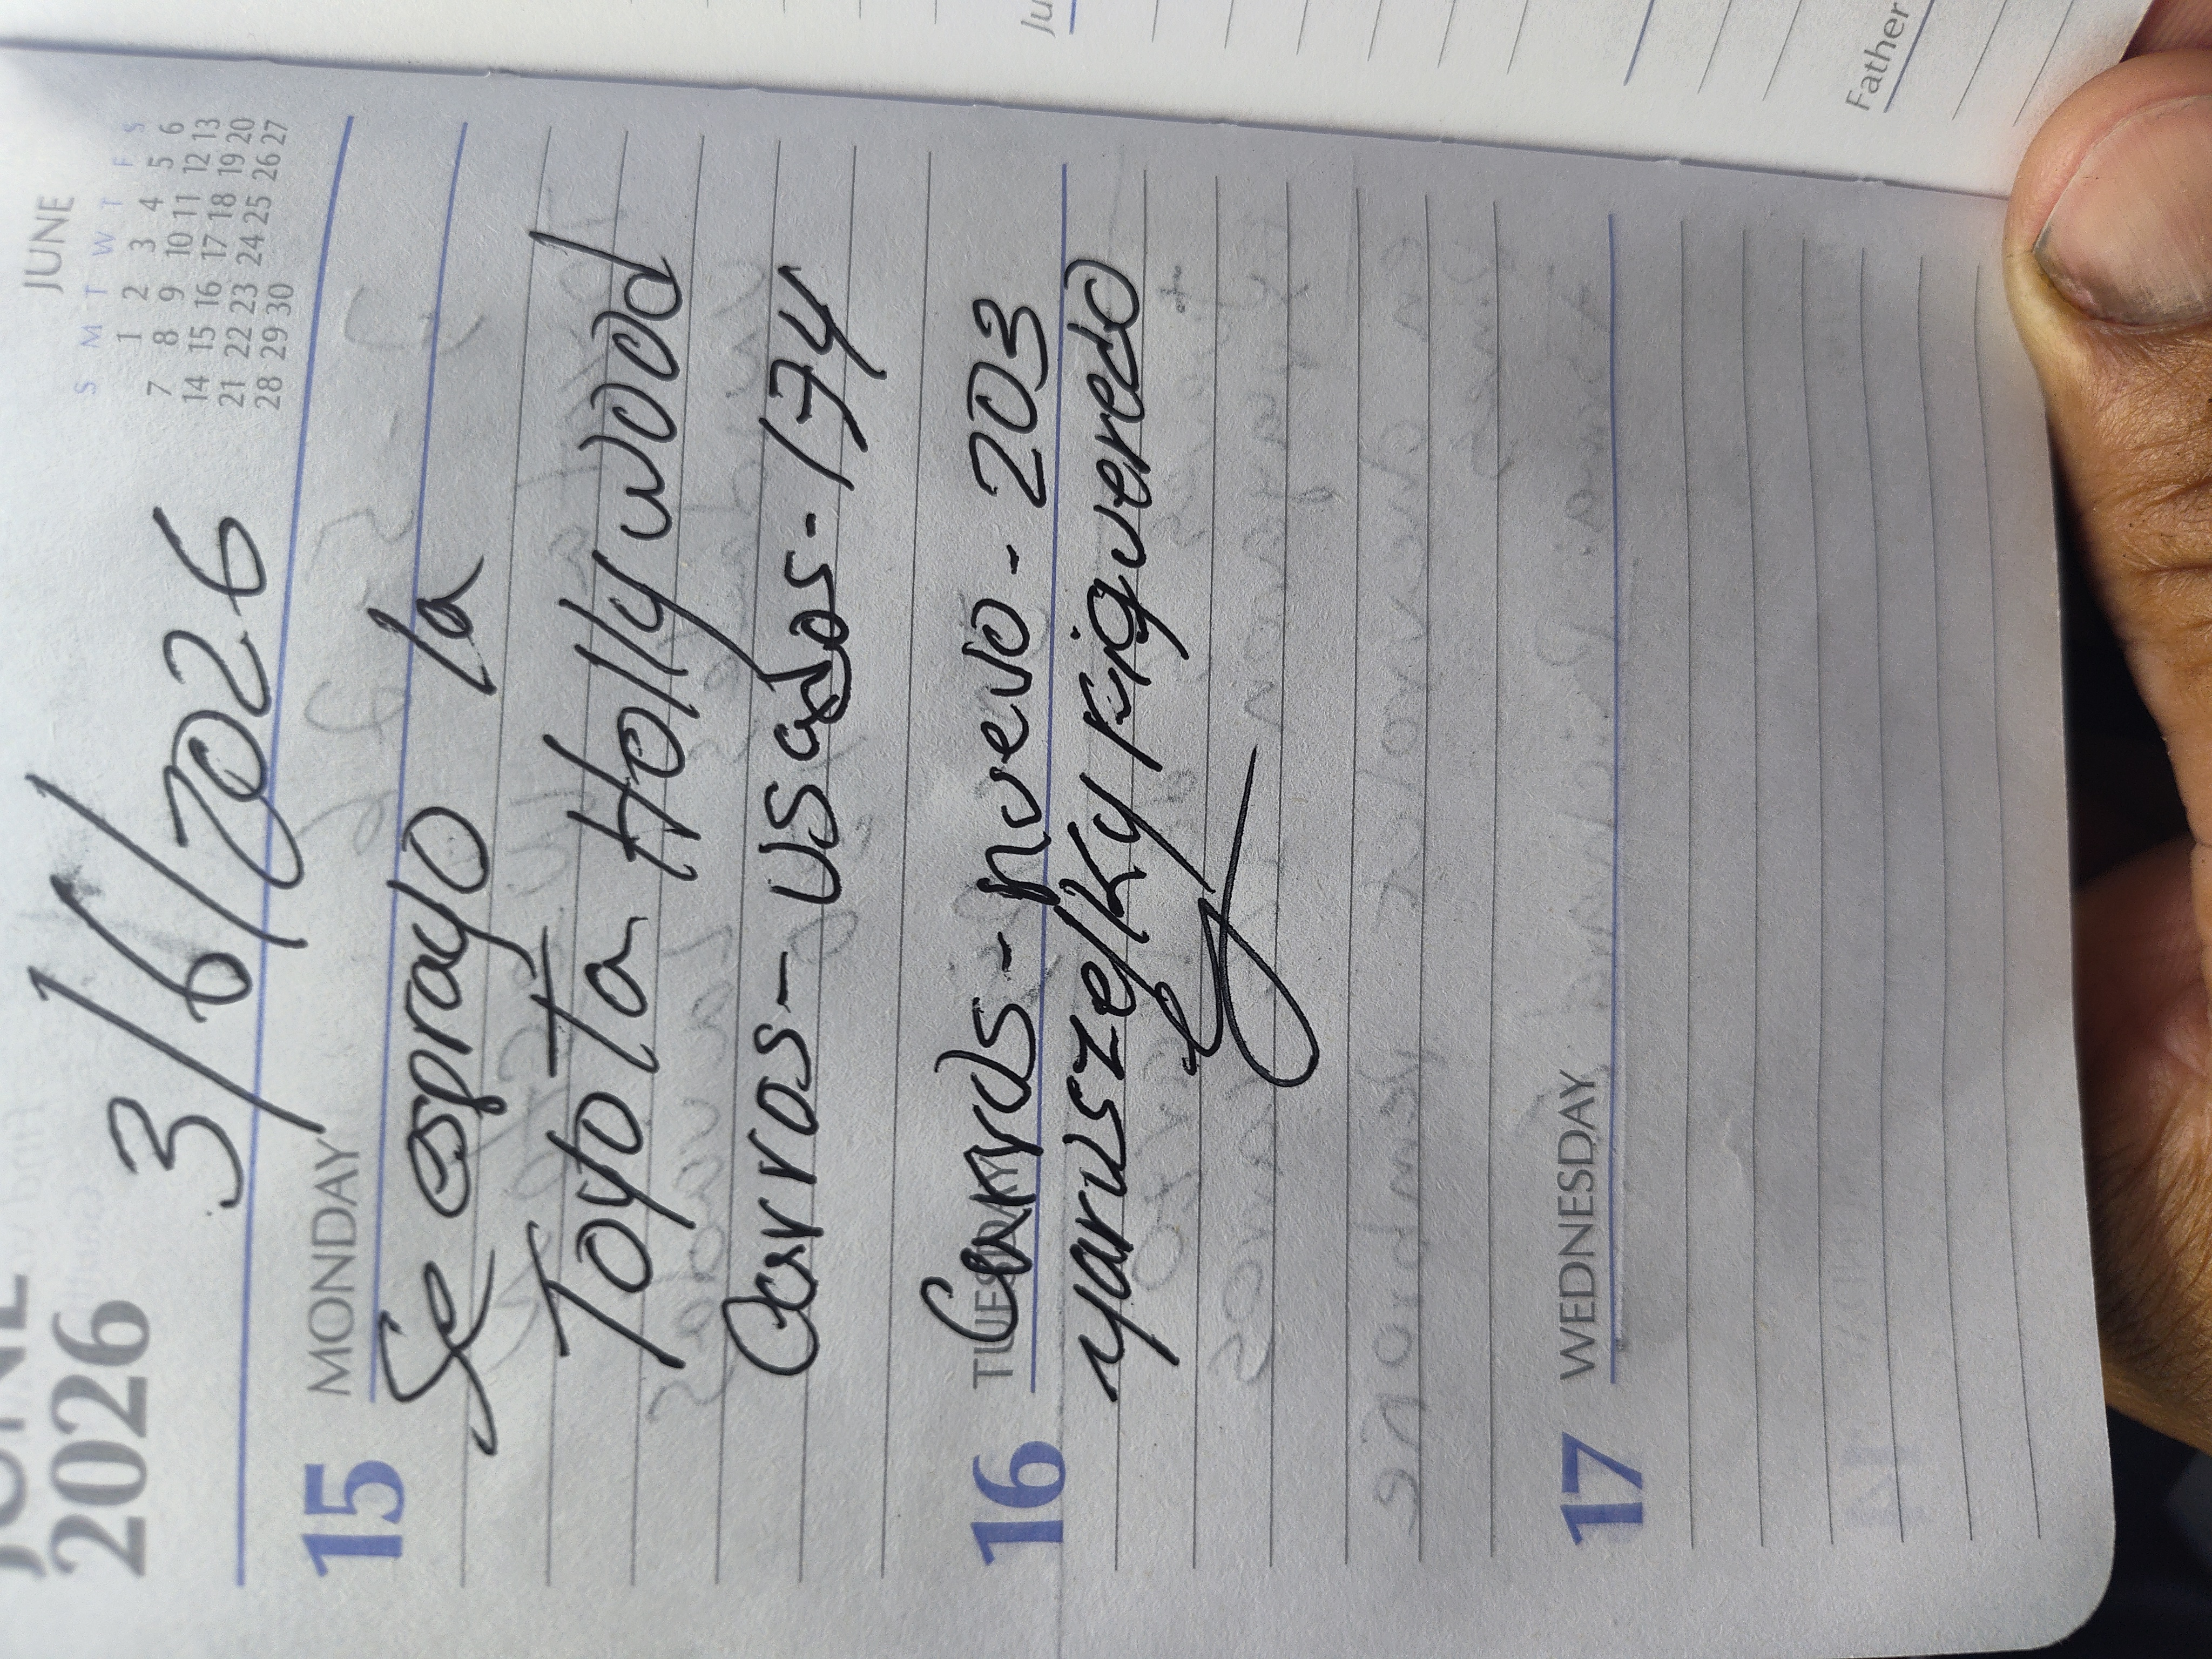 JUNE
2026
3/6/2026
JUNE
S M T W T F S
1 2 3 4 5 6
7 8 9 10 11 12 13
14 15 16 17 18 19 20
21 22 23 24 25 26 27
28 29 30
15 MONDAY
Se esprayo la
Toyota Hollywood
Carros - usados - 174
Carros - nuevo - 203
16 TUESDAY
yaruszelky Figueredo
17 WEDNESDAY
Father